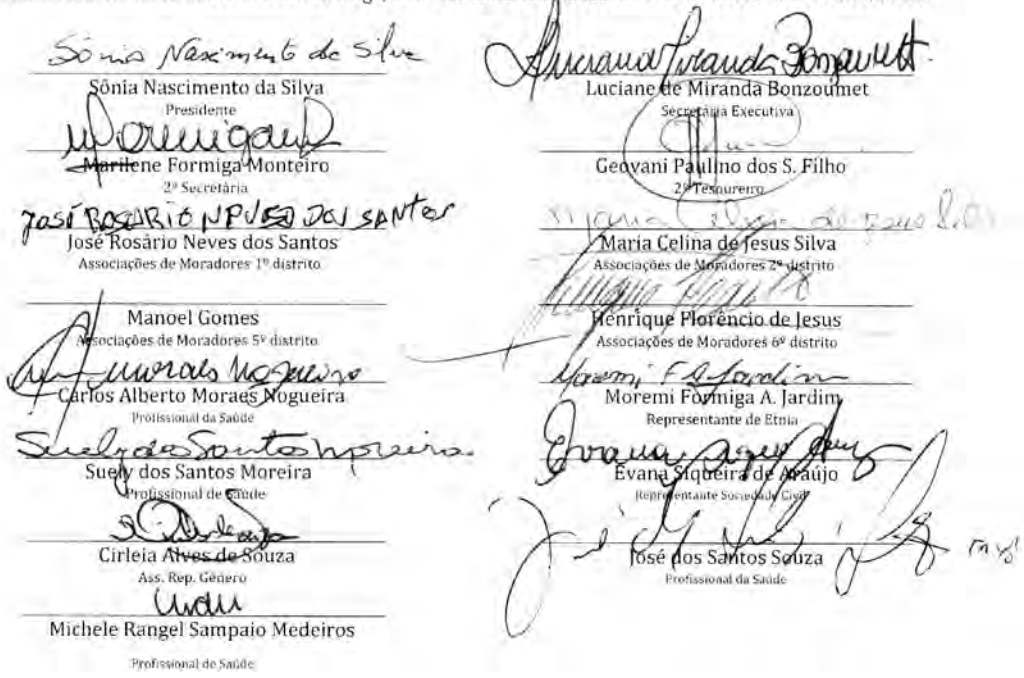 Sônia Nascimento da Silva
Sônia Nascimento da Silva
Presidente
Marilene Formiga Monteiro
2ª Secretária
José ROSÁRIO NEVES DOS SANTOS
José Rosário Neves dos Santos
Associações de Moradores 1º distrito
Manoel Gomes
Associações de Moradores 5º distrito
Carlos Alberto Moraes Nogueira
Profissional da Saúde
Suely dos Santos Moreira
Suely dos Santos Moreira
Profissional de Saúde
Cirleia Alves de Souza
Ass. Rep. Gênero
Michele Rangel Sampaio Medeiros
Profissional de Saúde
Luciane de Miranda Bonzoumet
Secretária Executiva
Geovani Paulino dos S. Filho
2º Tesoureiro
Maria Celina de Jesus Silva
Associações de Moradores 2º distrito
Henrique Florêncio de Jesus
Associações de Moradores 6º distrito
Moremi F A Jardim
Moremi Formiga A. Jardim
Representante de Etnia
Evana Siqueira de Araújo
Representante Sociedade Civil
José dos Santos Souza
Profissional da Saúde